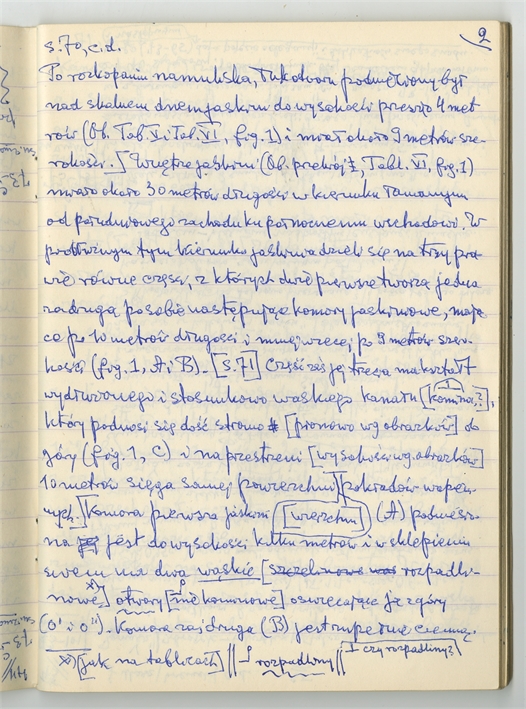 2
s. 70, c.d.
Po rozkopaniu namuliska, łuk otworu podniesiony był
nad skalnem dnem jaskini do wysokości przeszło 4 met
rów (Ob. Tab V i Tab. VI, fig. 1) i miał około 9 metrów sze-
rokości.] Wnętrze jaskini (Ob. przekrój I, Tabl. VI, fig. 1)
miało około 30 metrów długości w kierunku łamanym
od południowego zachodu ku północnemu wschodowi. W
podłużnym tym kierunku jaskinia dzieli się na trzy pra
wie równe części, z których dwie pierwsze tworzą jedna
za drugą po sobie następujące komory jaskiniowe, mają
ce po 10 metrów długości i mniej więcej po 9 metrów szer-
kości (fig. 1, A i B). - [s. 71] Część zaś jej trzecia ma kształt
wydłużonego i stosunkowo wąskiego kanału [komina?],
który podnosi się dość stromo [pionowo wg obrazków] do
góry (fig. 1, C) i na przestrzeni [wysokości wg. obrazków]
10 metrów sięga samej powierzchni pokładów wapien-
nych.] Komora pierwsza jaskini [wierzchnia] (A) podniesio-
na jest do wysokości kilku metrów i w sklepieniu
swem ma dwa wąskie [szczelinowe rozpadli-
nowe x)] otwory [nie kominowe] oświecające ją z góry
(o' i o"). Komora zaś druga (B) jest zupełnie ciemną.
x) [jak na tablicach] || rozpadliny || czy rozpadliny?